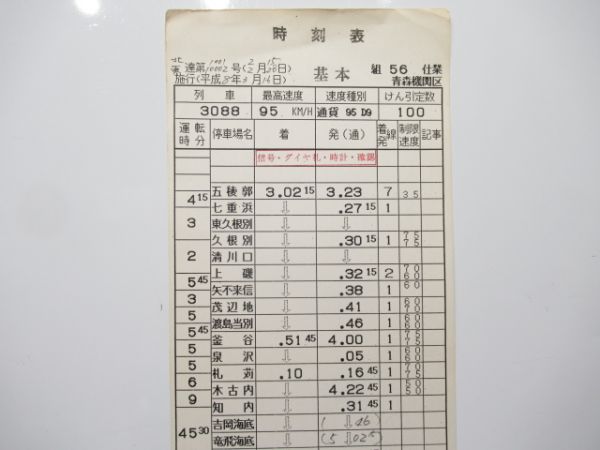 時刻表
北東達第1001 10002号(2月15 2月20日)
施行(平成8年3月16日)
基本
組 56 仕業
青森機関区
列車 最高速度 速度種別 けん引定数
3088 95 KM/H 通貨 95 D9 100
運転時分 停車場名 着 発(通) 着発線 制限速度 記事
信号・ダイヤ札・時計・確認
五稜郭 3.02 15 3.23 7 35
4 15
七重浜 ⇩ .27 15 1
3
東久根別 ⇩ ⇩
久根別 ⇩ .30 15 1 75 75
2
清川口 ⇩ ⇩
上磯 ⇩ .32 15 2 70 60
5 45
矢不来信 ⇩ .38 1 60
3
茂辺地 ⇩ .41 1 60 70
5
渡島当別 ⇩ .46 1 60 60
5 45
釜谷 .51 45 4.00 1 75 75
5
泉沢 ⇩ .05 1 60 60
5
札苅 .10 .16 45 1 70 75
6
木古内 ⇩ 4.22 45 1 50 50
9
知内 ⇩ .31 45 1
吉岡海底 ⇩ ( ⇩ 46)
45 30
竜飛海底 ⇩ (5 ⇩ 02 5)